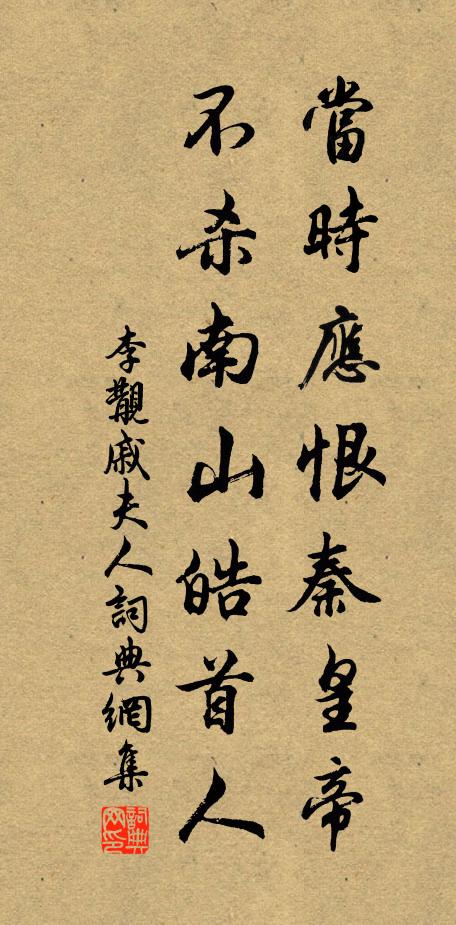 當時應恨秦皇帝
不杀南山皓首人
李觀戚夫人詞典網集
詞典網印